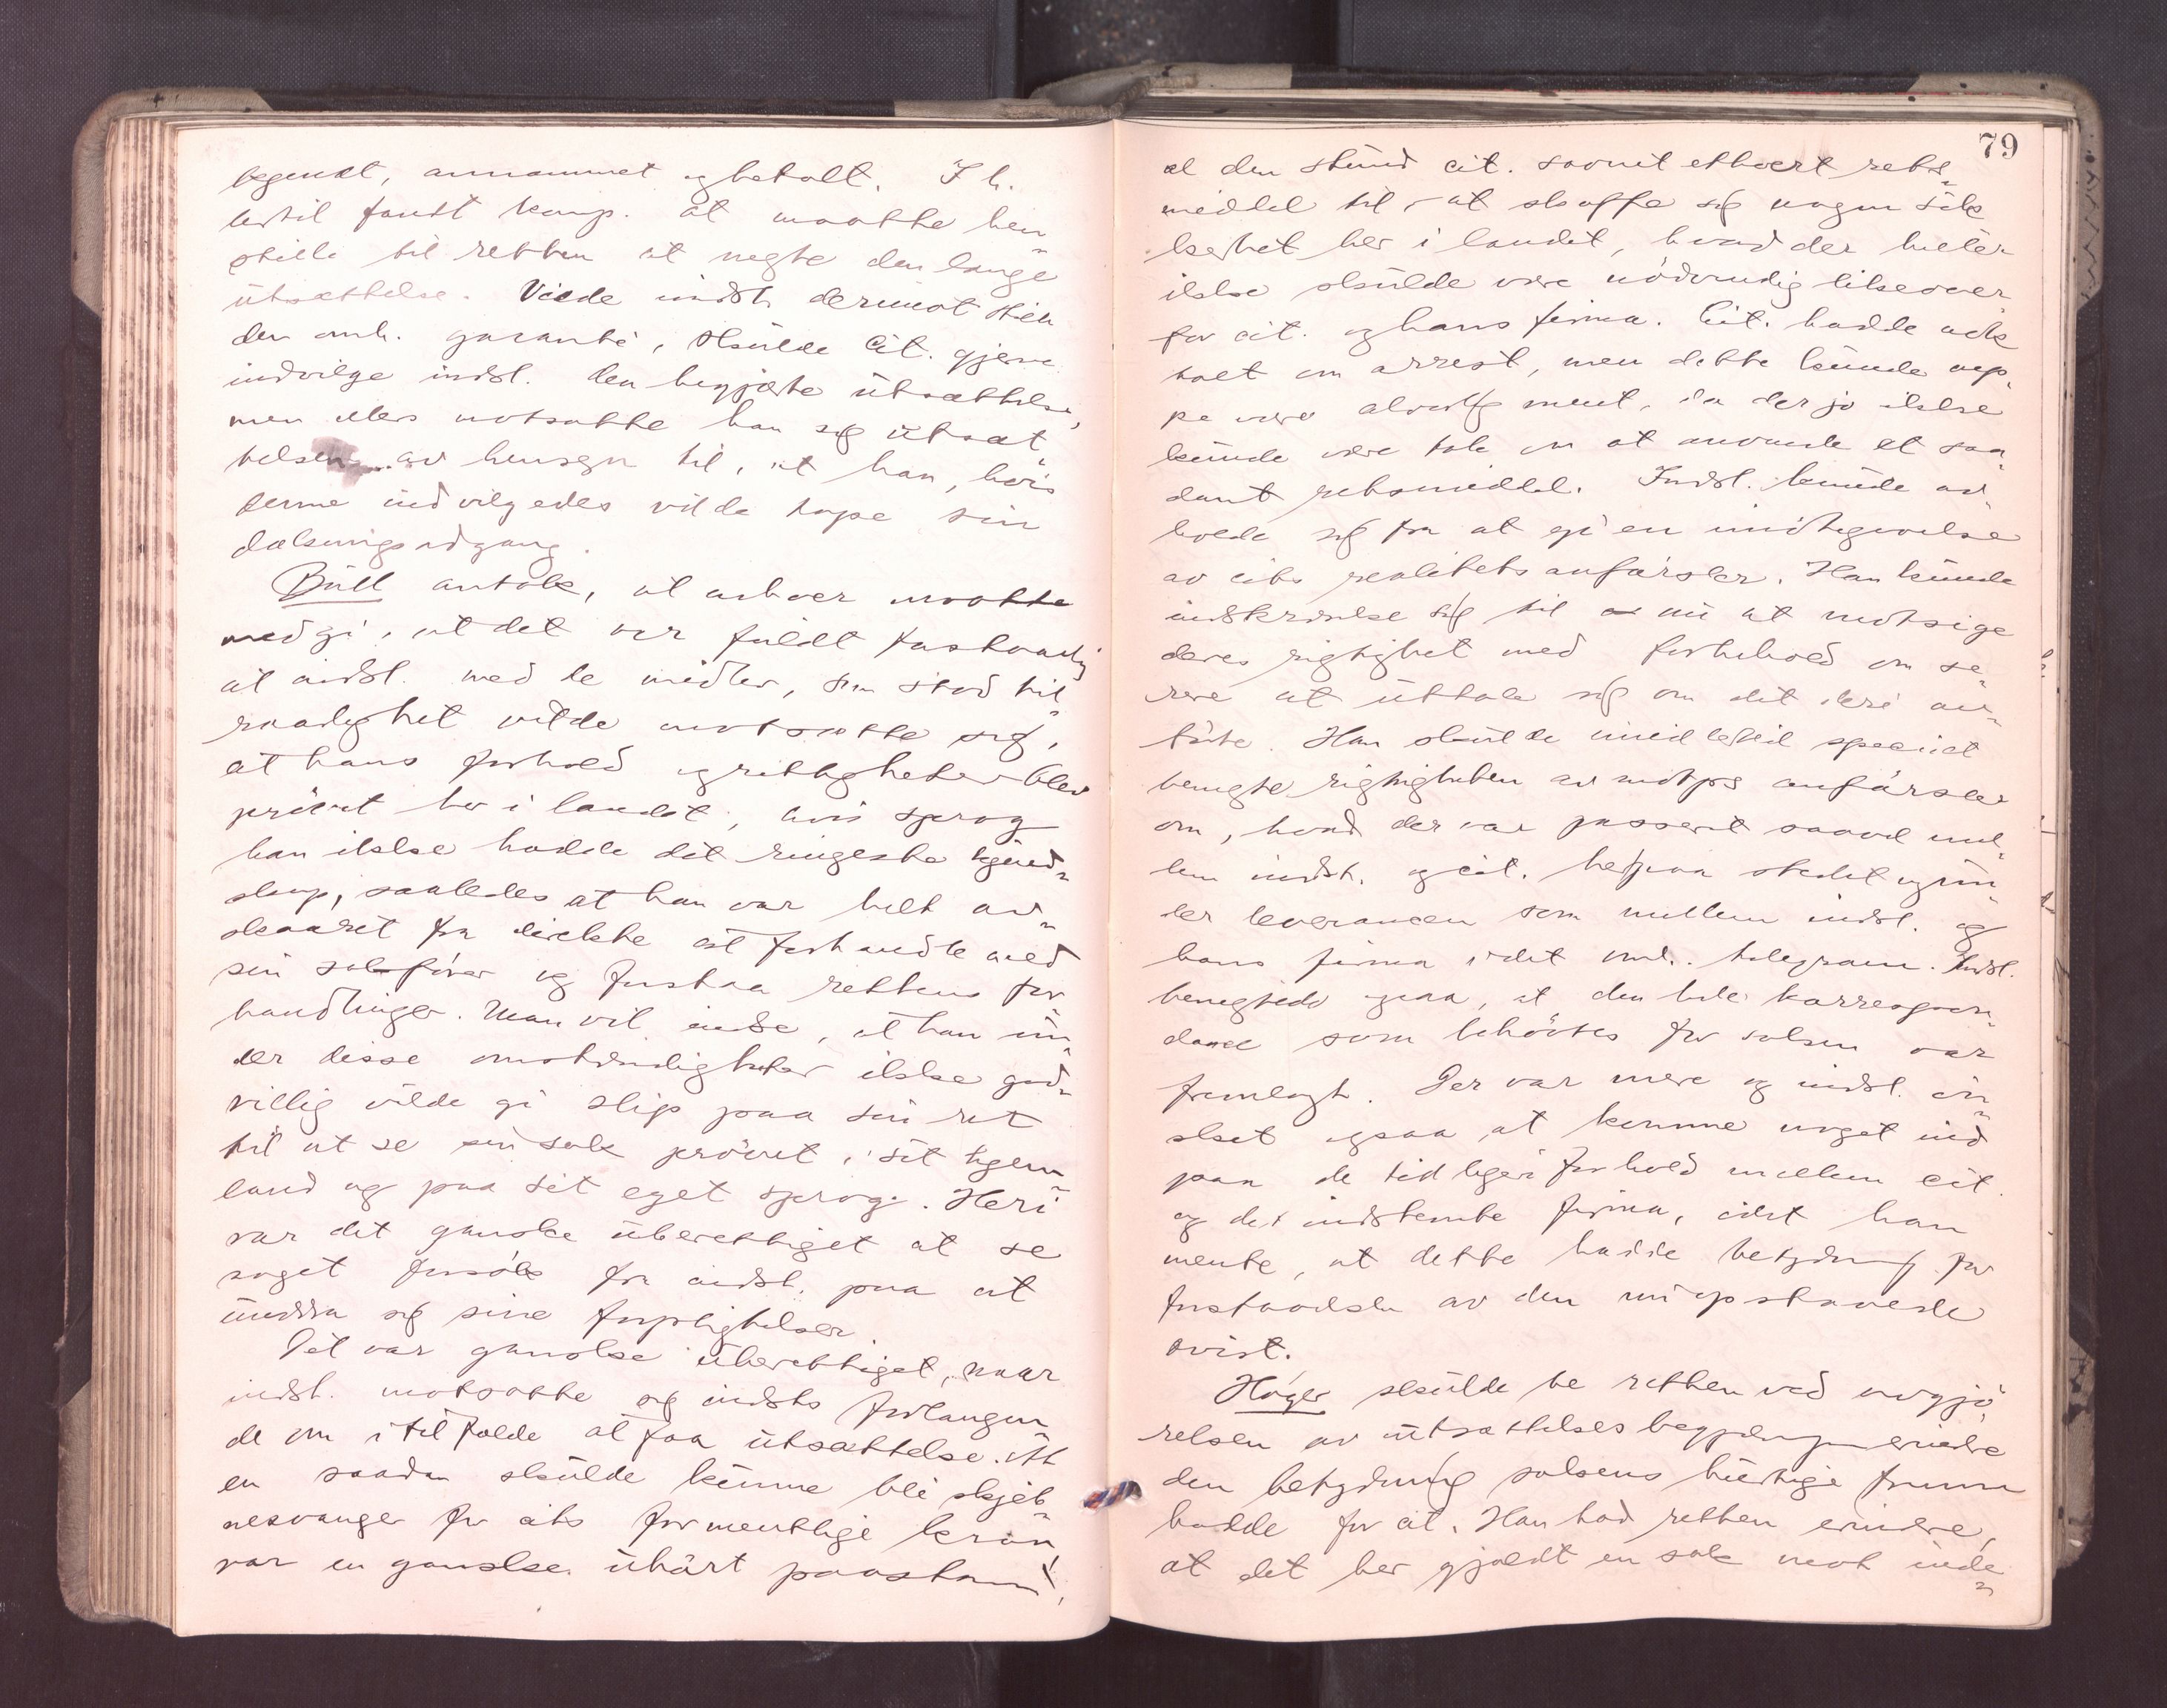 kjendt, annammet og betalt. I h.
hertil fandt komp. at maatte hen„
stille til retten at negte den lange
utsættelse. Vilde indst. derimot stille
den omh. garanti, skulde Cit. gjerne
indvilge indst. den begjærte utsættelse,
men ellers motsatte han sig utsæt„
telsen av hensyn til, at han, hvis
denne indvilgedes vilde tape sin
dækningsadgang.
Bull antok, at enhver maatte
medgi, at det var fuldt forstaaelig
at indst. med de midler, som stod til
raadighet vilde motsætte sig,
at hans forhold og rettigheter blev
prövet her i landet, hvis sprog
han ikke hadde det ringeste kjend„
skap, saaledes at han var helt av„
skaaret fra direkte at forhandle med
sin sakförer og forstaa rettens for„
handlinger. Man vil indse, at han un„
der disse omstændigheter ikke god„
villig vilde gi slip paa sin ret
til at se sin sak prövet i sit hjem„
land og paa sit eget sprog. Heri
var det ganske uberettiget at se
noget forsök fra indst. paa at
unddra sig sine forpligtelser.
Det var ganske uberettiget, naar
indst. motsatte sig indsts forlangen„
de om i tilfælde at faa utsættelse. At
en saadan skulde kunne bli skjæb„
nesvanger for cits formentlige krav,
var en ganske uhört paastand,
79
al den stund cit. savnet ethvert rets„
middel til at skaffe sig nogen sik„
kerhet her i landet, hvad der heller
ikke skulde være nödvendig likeover„
for cit. og hans firma. Cit. hadde nok
talt om arrest, men dette kunde nep„
pe være alvorlig ment, da der jo ikke
kunde være tale om at anvende et saa„
dant retsmiddel. Indst. kunde av„
holde sig fra at gi en imötegaaelse
av cits realitetsanförsler. Han kunde
indskrænke sig til nu at motsige
deres rigtighet med forbehold om se„
nere at uttale sig om det deri an„
förte. Han skulde imidlertid specielt
benegte rigtigheten av motps anförsler
om, hvad der var passeret saavel mel„
lem indst. og cit. herpaa stedet un„
der leverancen som mellem indst. og
hans firma i det omh. telegram. Indst.
benegtede ogsaa, at den hele korrespon„
dance som behövtes for saken var
fremlagt. Der var mere og indst. ön„
sket ogsaa at komme noget ind
paa de tidligere forhold mellem cit.
og det indstevnte firma, idet han
mente, at dette hadde betydning for
forstaaelsen av den nu opstaaede
tvist.
Höyer skulde be retten ved avgjö„
relsen av utsættelsesbegjæringen erindre
den betydning sakens hurtige fremme
hadde for cit. Han bad retten erindre,
at det her gjældt en sak mot inde„